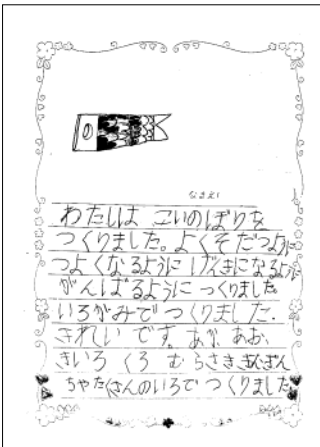 なまえ
わたしは こいのぼりを
つくりました。よくそだつように
つよくなるように げんきになるように
がんばるように つくりました
いろがみで つくりました.
きれい です。あか、あお、
きいろ くろ むらさき きん ぎん
ちゃ たくさんのいろで つくりました